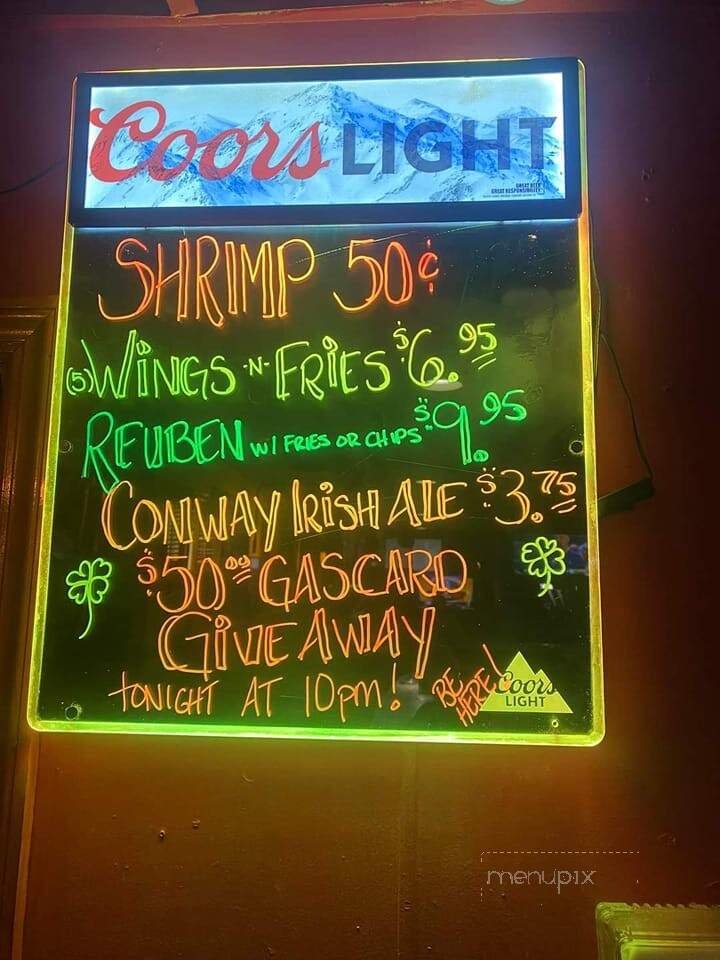 Coors LIGHT
GREAT BEER
GREAT RESPONSIBILITY
SHRIMP 50¢
(5) WiNGS -N- FRiES $6.95
REUBEN W/ FRIES OR CHIPS $9.95
CONWAY IRiSH ALE $3.75
$50.00 GASCARD
GiVE AWAY
tONIGHT AT 10pm!
BE HERE!
Coors
LIGHT
menupix